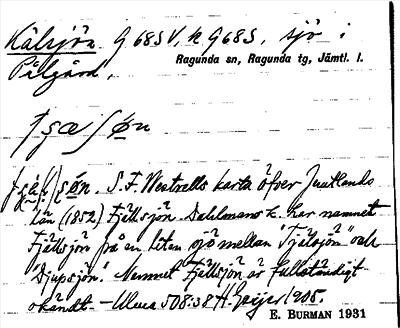 Kälsjön G 685 V, k G 685, sjö i
Ragunda sn, Ragunda tg, Jämtl. l.
Pålgård,
S. F. Westrells karta öfver Jemtlands
Län (1852) Fjällsjön. Dahlmans k. har namnet
Fjällsjön på en liten sjö mellan "Tjälsjön" och
"Djupsjön". Namnet Fjällsjön är fullständigt
okändt. — Ulma 508:38 H. Geijer 1905.
E. BURMAN 1931